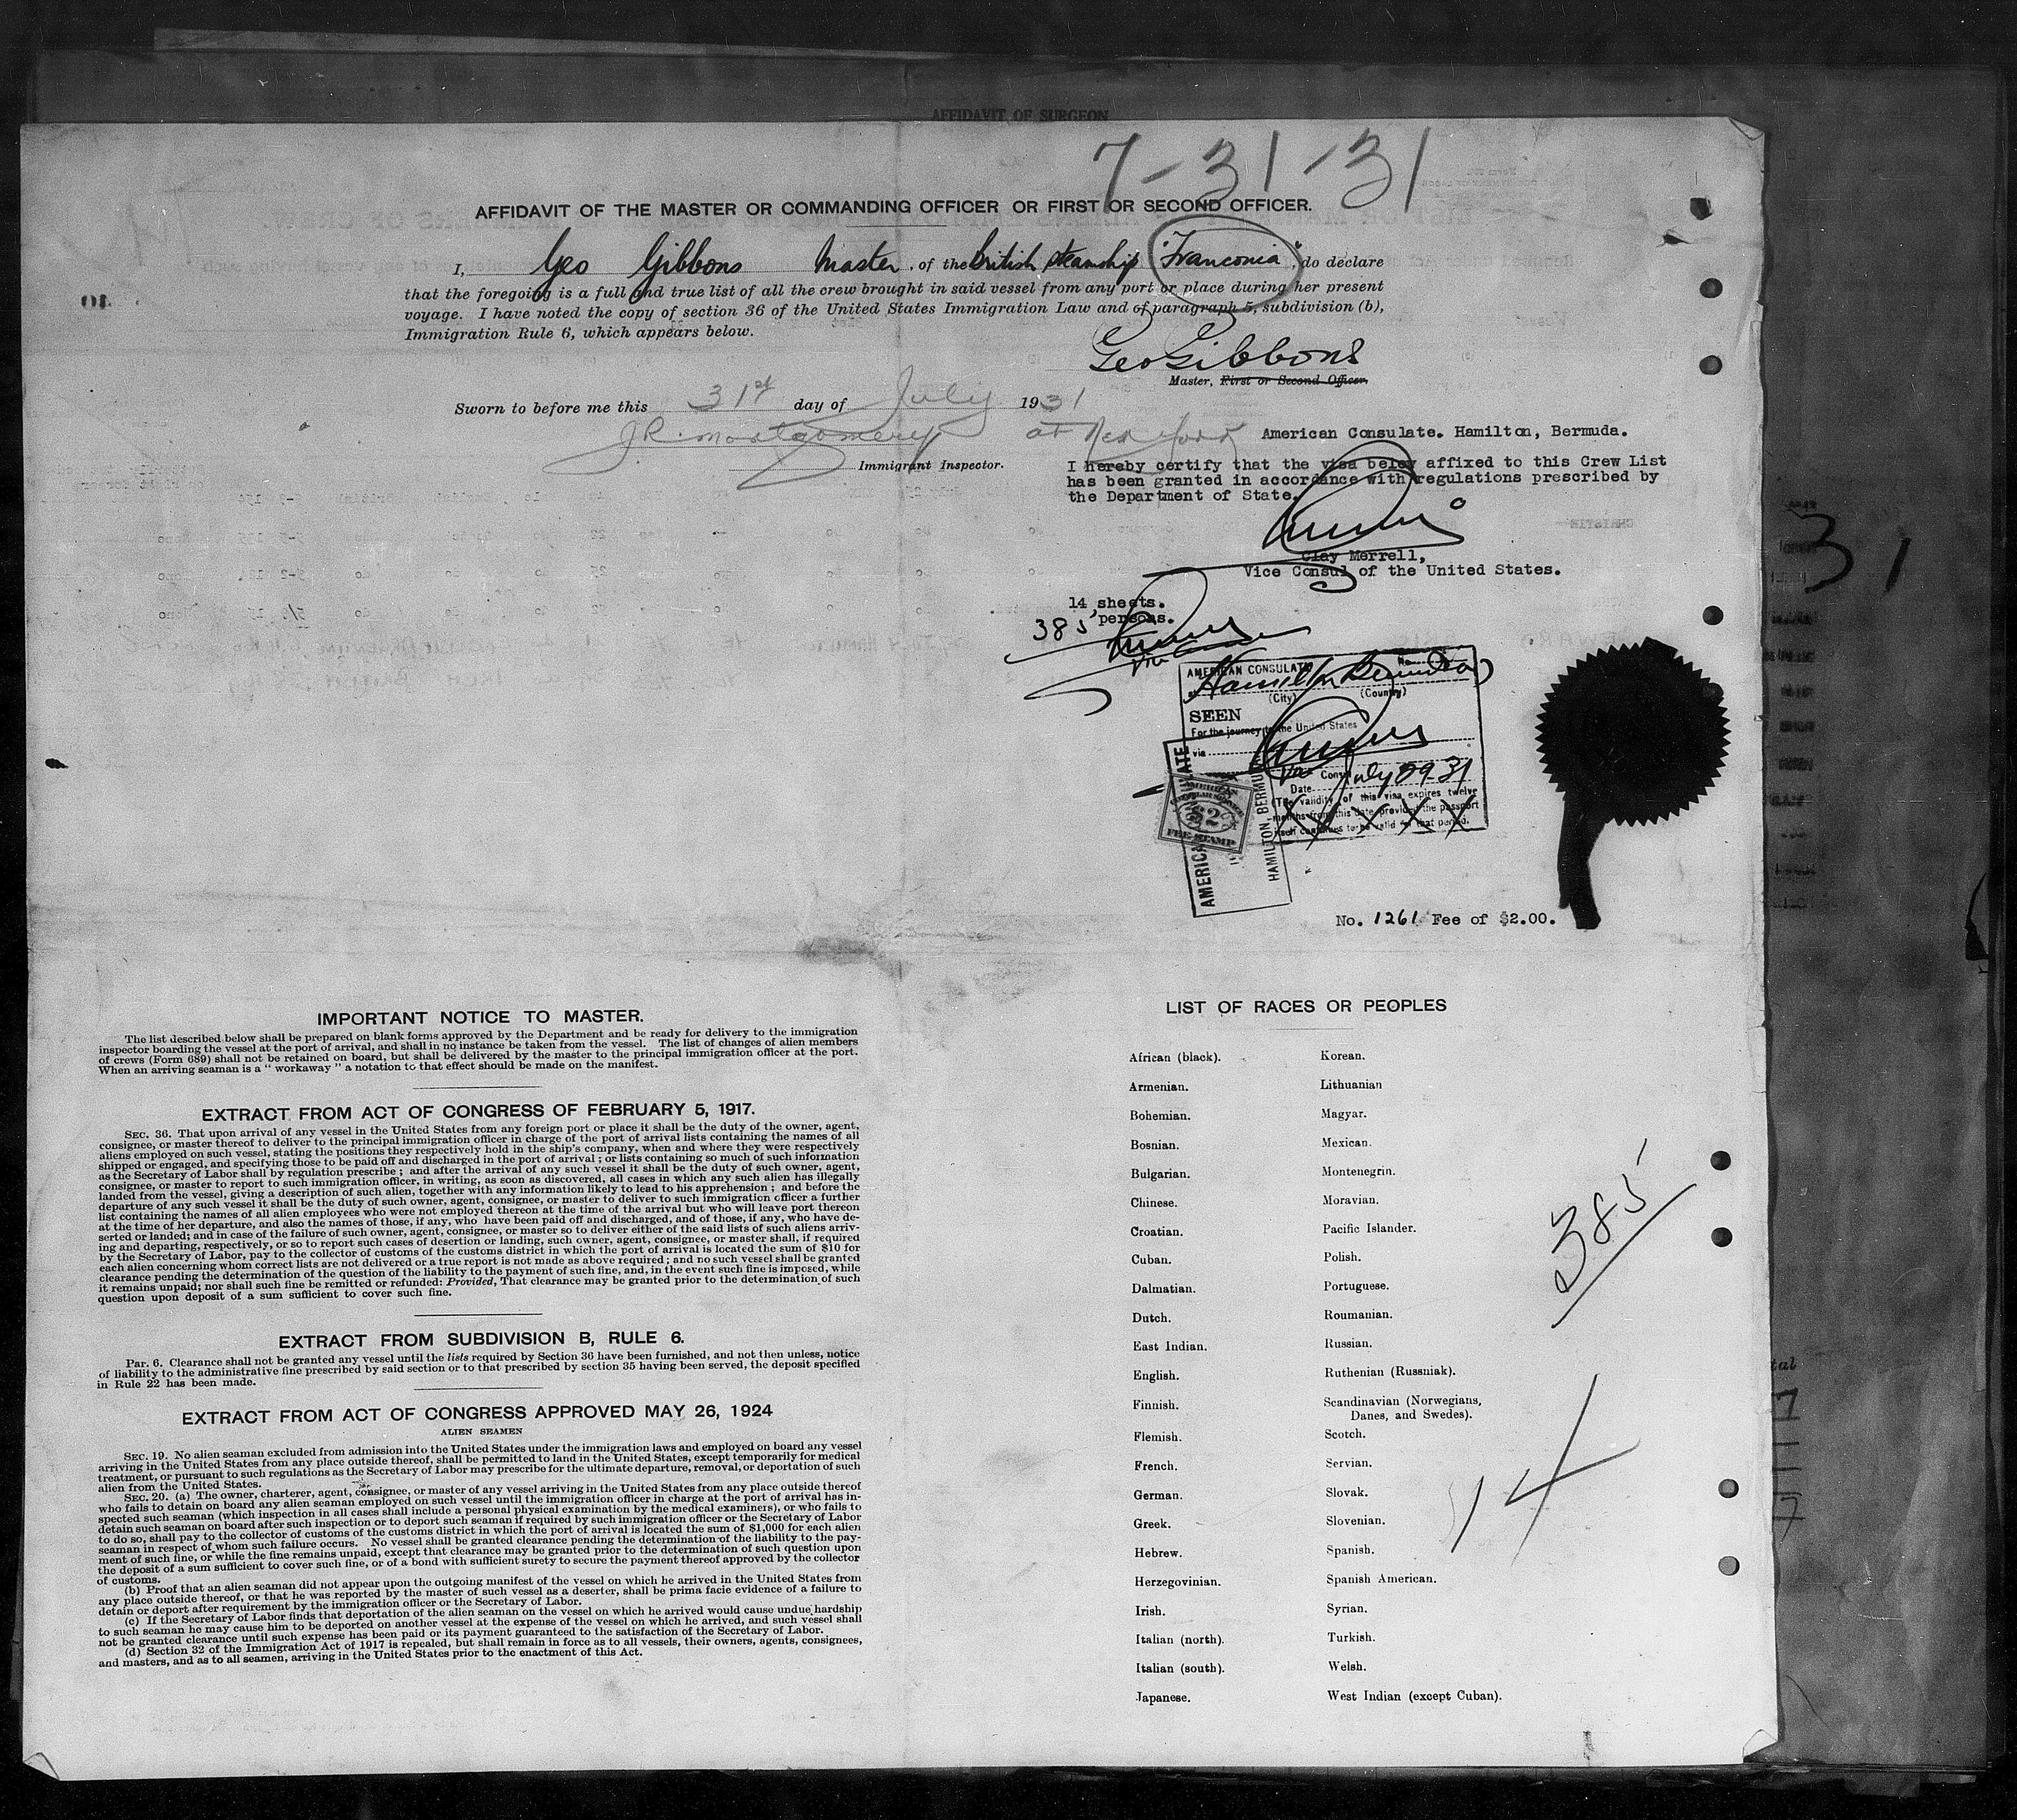 AFFIDAVIT OF SURGEON
7-31-31
AFFIDAVIT OF THE MASTER OR COMMANDING OFFICER OR FIRST OR SECOND OFFICER.
I, Geo Gibbons Master, of the British steamship "Franconia", do declare
that the foregoing is a full and true list of all the crew brought in said vessel from any port or place during her present
voyage. I have noted the copy of section 36 of the United States Immigration Law and of paragraph 5, subdivision (b),
Immigration Rule 6, which appears below.
Geo Gibbons
Master, First or Second Officer.
Sworn to before me this 31st day of July 1931
J R Montgomery at New York
Immigrant Inspector.
American Consulate. Hamilton, Bermuda.
I hereby certify that the visa below affixed to this Crew List
has been granted in accordance with regulations prescribed by
the Department of State.
Clay Merrell,
Vice Consul of the United States.
14 sheets.
385 persons.
AMERICAN CONSULATE No.
at Hamilton Bermuda
(City) (Country)
SEEN
For the journey to the United States
via
Vice Consul
Date July 29-31
(The validity of this visa expires twelve
months from this date provided the passport
such continues to be valid for that period.
XXXXX
AMERICAN
$2
FEE STAMP
AMERICAN CONSULATE
HAMILTON, BERMUDA
No. 1261 Fee of $2.00.
31
IMPORTANT NOTICE TO MASTER.
The list described below shall be prepared on blank forms approved by the Department and be ready for delivery to the immigration
inspector boarding the vessel at the port of arrival, and shall in no instance be taken from the vessel. The list of changes of alien members
of crews (Form 689) shall not be retained on board, but shall be delivered by the master to the principal immigration officer at the port.
When an arriving seaman is a "workaway" a notation to that effect should be made on the manifest.
EXTRACT FROM ACT OF CONGRESS OF FEBRUARY 5, 1917.
SEC. 36. That upon arrival of any vessel in the United States from any foreign port or place it shall be the duty of the owner, agent,
consignee, or master thereof to deliver to the principal immigration officer in charge of the port of arrival lists containing the names of all
aliens employed on such vessel, stating the positions they respectively hold in the ship's company, when and where they were respectively
shipped or engaged, and specifying those to be paid off and discharged in the port of arrival; or lists containing so much of such information
as the Secretary of Labor shall by regulation prescribe; and after the arrival of any such vessel it shall be the duty of such owner, agent,
consignee, or master to report to such immigration officer, in writing, as soon as discovered, all cases in which any such alien has illegally
landed from the vessel, giving a description of such alien, together with any information likely to lead to his apprehension; and before the
departure of any such vessel it shall be the duty of such owner, agent, consignee, or master to deliver to such immigration officer a further
list containing the names of all alien employees who were not employed thereon at the time of the arrival but who will leave port thereon
at the time of her departure, and also the names of those, if any, who have been paid off and discharged, and of those, if any, who have de-
serted or landed; and in case of the failure of such owner, agent, consignee, or master so to deliver either of the said lists of such aliens arriv-
ing and departing, respectively, or so to report such cases of desertion or landing, such owner, agent, consignee, or master shall, if required
by the Secretary of Labor, pay to the collector of customs of the customs district in which the port of arrival is located the sum of $10 for
each alien concerning whom correct lists are not delivered or a true report is not made as above required; and no such vessel shall be granted
clearance pending the determination of the question of the liability to the payment of such fine, and, in the event such fine is imposed, while
it remains unpaid; nor shall such fine be remitted or refunded: Provided, That clearance may be granted prior to the determination of such
question upon deposit of a sum sufficient to cover such fine.
EXTRACT FROM SUBDIVISION B, RULE 6.
Par. 6. Clearance shall not be granted any vessel until the lists required by Section 36 have been furnished, and not then unless, notice
of liability to the administrative fine prescribed by said section or to that prescribed by section 35 having been served, the deposit specified
in Rule 22 has been made.
EXTRACT FROM ACT OF CONGRESS APPROVED MAY 26, 1924
ALIEN SEAMEN
SEC. 19. No alien seaman excluded from admission into the United States under the immigration laws and employed on board any vessel
arriving in the United States from any place outside thereof, shall be permitted to land in the United States, except temporarily for medical
treatment, or pursuant to such regulations as the Secretary of Labor may prescribe for the ultimate departure, removal, or deportation of such
alien from the United States.
SEC. 20. (a) The owner, charterer, agent, consignee, or master of any vessel arriving in the United States from any place outside thereof
who fails to detain on board any alien seaman employed on such vessel until the immigration officer in charge at the port of arrival has in-
spected such seaman (which inspection in all cases shall include a personal physical examination by the medical examiners), or who fails to
detain such seaman on board after such inspection or to deport such seaman if required by such immigration officer or the Secretary of Labor
to do so, shall pay to the collector of customs of the customs district in which the port of arrival is located the sum of $1,000 for each alien
seaman in respect of whom such failure occurs. No vessel shall be granted clearance pending the determination of the liability to the pay-
ment of such fine, or while the fine remains unpaid, except that clearance may be granted prior to the determination of such question upon
the deposit of a sum sufficient to cover such fine, or of a bond with sufficient surety to secure the payment thereof approved by the collector
of customs.
(b) Proof that an alien seaman did not appear upon the outgoing manifest of the vessel on which he arrived in the United States from
any place outside thereof, or that he was reported by the master of such vessel as a deserter, shall be prima facie evidence of a failure to
detain or deport after requirement by the immigration officer or the Secretary of Labor.
(c) If the Secretary of Labor finds that deportation of the alien seaman on the vessel on which he arrived would cause undue hardship
to such seaman he may cause him to be deported on another vessel at the expense of the vessel on which he arrived, and such vessel shall
not be granted clearance until such expense has been paid or its payment guaranteed to the satisfaction of the Secretary of Labor.
(d) Section 32 of the Immigration Act of 1917 is repealed, but shall remain in force as to all vessels, their owners, agents, consignees,
and masters, and as to all seamen, arriving in the United States prior to the enactment of this Act.
LIST OF RACES OR PEOPLES
African (black). Korean.
Armenian. Lithuanian
Bohemian. Magyar.
Bosnian. Mexican.
Bulgarian. Montenegrin.
Chinese. Moravian.
Croatian. Pacific Islander.
Cuban. Polish.
Dalmatian. Portuguese.
Dutch. Roumanian.
East Indian. Russian.
English. Ruthenian (Russniak).
Finnish. Scandinavian (Norwegians,
Danes, and Swedes).
Flemish. Scotch.
French. Servian.
German. Slovak.
Greek. Slovenian.
Hebrew. Spanish.
Herzegovinian. Spanish American.
Irish. Syrian.
Italian (north). Turkish.
Italian (south). Welsh.
Japanese. West Indian (except Cuban).
385
14